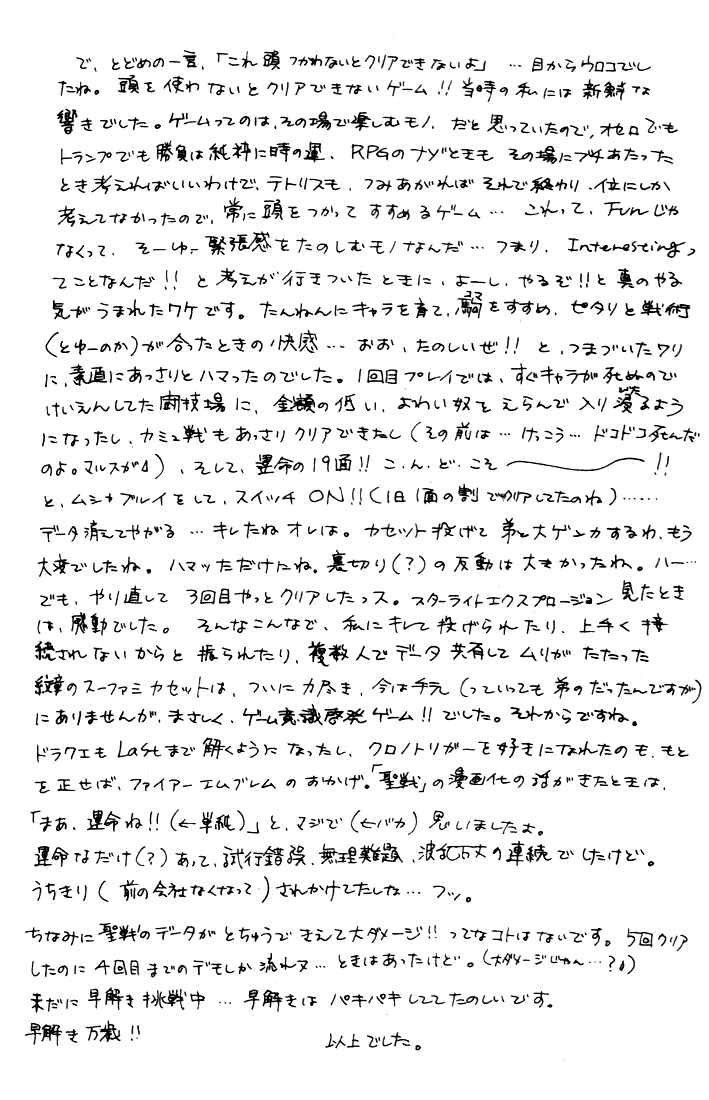 で、とどめの一言、「これ頭つかわないとクリアできないよ」…目からウロコでし
たね。頭を使わないとクリアできないゲーム!!当時の私には新鮮な
響きでした。ゲームってのは、その場で楽しむモノ、だと思っていたので、オセロでも
トランプでも勝負は紙神に時の運、RPGのナゾときも その場にブチあたった
とき考えればいいわけで、テトリスも、つみあがれば それで終わり、位にしか
考えてなかったので、常に頭をつかって すすめるゲーム… これって、Funじゃ
なくって、そーゆー緊張感をたのしむモノなんだ…つまり、Interestingっ
てことなんだ!!と考えが行きついたときに、よーし、やるぞ!!と真のやる
気がうまれたワケです。たんねんにキャラを育て、駒(コマ)をすすめ、ピタリと戦術
(とゆーのか)が合ったときの快感…おお、たのしいぜ!!と、つまづいたワリ
に、素直にあっさりとハマったのでした。1回目プレイでは、すぐキャラが死ぬので
けいえんしてた闘技場に、金額の低い、よわい奴をえらんで入り浸(びた)るよう
になったし、カミュ戦もあっさりクリアできたし(その前は…けっこう…ドコドコ死んだ
のよ。マルスが)、そして、運命の19面!!こ.ん.ど.こそ――!!
と、ムシャブルイをして、スイッチON!!(1日1面の割でクリアしてたのね)……
データ消えてやがる…キレたねオレは。カセット投げて弟と大ゲンカするわ、もう
大変でしたね。ハマッただけにね。裏切り(?)の反動は大きかったね。ハー…
でも、やり直して 3回目やっとクリアしたっス。スターライトエクスプロージョン見たとき
は、感動でした。そんなこんなで、私にキレて投げられたり、上手く接
続されないからと振られたり、複数人でデータ共有してムリがたたった
紋章のスーファミカセットは、ついに力尽き、今は手元(っていっても弟のだったんですが)
にありませんが、まさしく、ゲーム意識啓発ゲーム!!でした。それからですね。
ドラクエもLastまで解くようになったし、クロノトリガーを好きになれたのも、もと
を正せば、ファイアーエムブレムのおかげ。「聖戦」の漫画化の話がきたときは、
「まあ、運命ね!!(←単純)」と、マジで(←バカ)思いましたよ。
運命なだけ(?)あって、試行錯誤、無理難題、波乱万丈の連続でしたけど。
うちきり(前の会社なくなって)されかけてたしな…フッ。
ちなみに聖戦のデータがとちゅうできえて大ダメージ!!ってなコトはないです。5回クリア
したのに4回目までのデモしか流れヌ…ときはあったけど。(大ダメージじゃん…?)
未だに早解き挑戦中…早解きはパキパキしててたのしいです。
早解き万歳!!
以上でした。